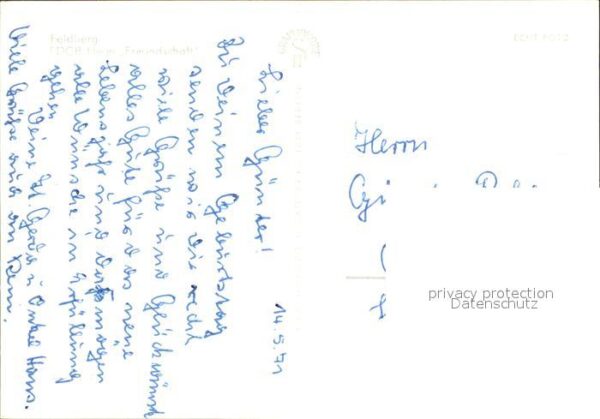 Feldberg
FDGB-Heim „Freundschaft"
14.5.71
Lieber Günter!
Zu Deinem Geburtstag
senden wir Dir recht
viele Grüße und Glückwünsche
alles Gute für das neue
Lebensjahr und mögen
alle Wünsche in Erfüllung
gehen
Deine Gerda u. Onkel Hans.
Viele Grüße auch an
Herrn
privacy protection
Datenschutz